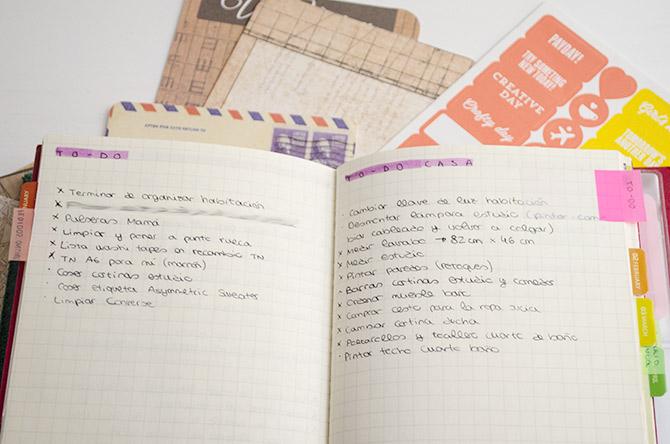 TO-DO
x Terminar de organizar habitación
x
x Pulseras Mamá
x Limpiar y poner a punto rueca
x Lista washi tapes en recambios TN
x TN A6 para mí (mamá)
· Coser cortinas estudio
· Coser etiqueta Asymmetric Sweater
· Limpiar Converse
TO-DO CASA
· Cambiar llave de luz habitación
· Desmontar lámpara estudio (pintar, cam
biar cableado y volver a colgar)
x Medir lavabo → 82 cm x 46 cm
x Medir estudio
· Pintar paredes (retoques)
x Barras cortinas estudio y comedor
x mueble
x Comprar cesto para la ropa sucia
x Cambiar cortina ducha
x Portarrollos y toallero cuarto de baño
· Pintar techo cuarto baño
TO-DO
02 FEBRUARY
03 MARCH
PAYDAY!
TRY SOMETHING
NEW TODAY!
CREATIVE
DAY
Crafty day